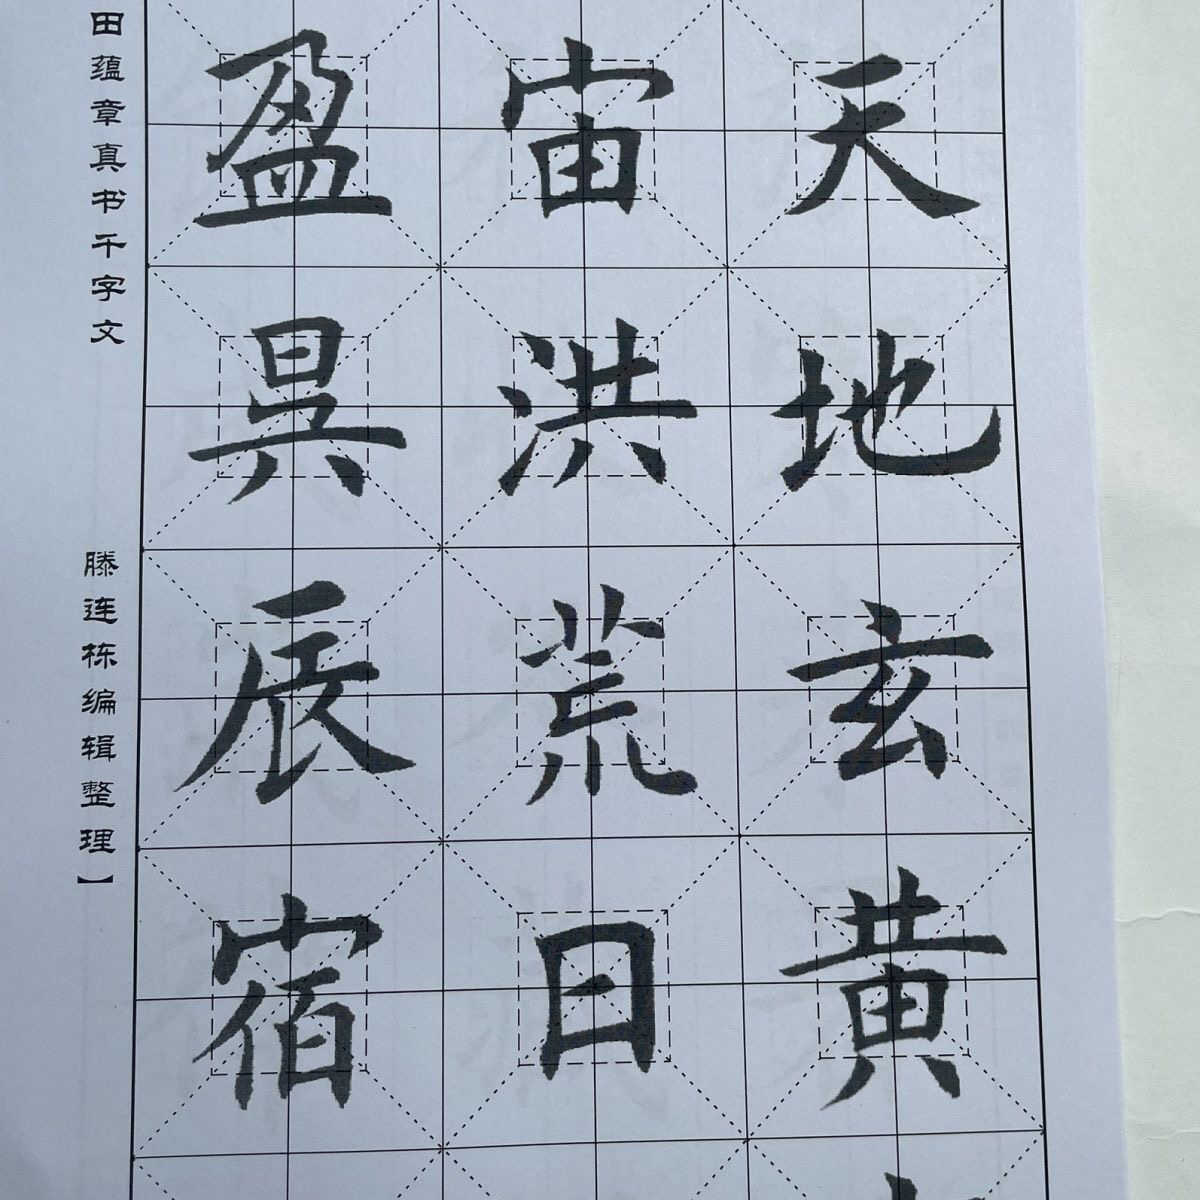 天地玄黄
宙洪荒日
盈昃辰宿
田蕴章真书千字文 滕连栋编辑整理】